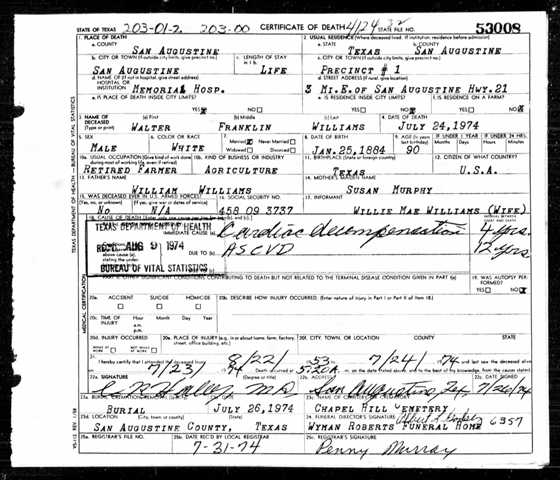 STATE OF TEXAS 203-01-2. 203-00 CERTIFICATE OF DEATH STATE FILE NO. 53008
1. PLACE OF DEATH 2. USUAL RESIDENCE (Where deceased lived. If institution: residence before admission)
a. COUNTY a. STATE b. COUNTY
SAN AUGUSTINE TEXAS SAN AUGUSTINE
b. CITY OR TOWN (If outside city limits, give precinct no.) c. LENGTH OF STAY c. CITY OR TOWN (If outside city limits, give precinct no.)
SAN AUGUSTINE LIFE PRECINCT # 1
d. NAME OF (If not in hospital, give street address) d. STREET ADDRESS (If rural, give location)
HOSPITAL OR INSTITUTION MEMORIAL HOSP. 3 MI.E.OF SAN AUGUSTINE HWY.21
e. IS PLACE OF DEATH INSIDE CITY LIMITS? e. IS RESIDENCE INSIDE CITY LIMITS? f. IS RESIDENCE ON A FARM?
YES NO YES NO YES NO
3. NAME OF DECEASED (Type or print) (a) First (b) Middle (c) Last 4. DATE OF DEATH
WALTER FRANKLIN WILLIAMS JULY 24,1974
5. SEX 6. COLOR OR RACE 7. Married Never Married Widowed Divorced 8. DATE OF BIRTH 9. AGE IF UNDER 1 YEAR IF UNDER 24 HRS.
MALE WHITE JAN.25,1884 90
10a. USUAL OCCUPATION (Give kind of work done 10b. KIND OF BUSINESS OR INDUSTRY 11. BIRTHPLACE (State or foreign country) 12. CITIZEN OF WHAT COUNTRY?
RETIRED FARMER AGRICULTURE TEXAS U.S.A.
13. FATHER'S NAME 14. MOTHER'S MAIDEN NAME
WILLIAM WILLIAMS SUSAN MURPHY
15. WAS DECEASED EVER IN U.S. ARMED FORCES? 16. SOCIAL SECURITY NO.
NO N/A 458 09 3737 WILLIE MAE WILLIAMS (WIFE)
18. CAUSE OF DEATH
TEXAS DEPARTMENT OF HEALTH IMMEDIATE CAUSE (a) Cardiac decompensation 4 yrs.
REC'D AUG 9 1974 DUE TO (b) ASCVD 12 yrs
BUREAU OF VITAL STATISTICS
CONDITIONS CONTRIBUTING TO DEATH BUT NOT RELATED TO THE TERMINAL DISEASE CONDITION GIVEN IN PART I(a) 19. WAS AUTOPSY PERFORMED?
YES NO
20a. ACCIDENT SUICIDE HOMICIDE 20b. DESCRIBE HOW INJURY OCCURRED. (Enter nature of injury in Part I or Part II of Item 18.)
20c. TIME OF INJURY Hour Month Day Year
a.m.
p.m.
20d. INJURY OCCURRED 20e. PLACE OF INJURY (e.g., in or about home, farm, factory, street, office building, etc.) 20f. CITY, TOWN, OR LOCATION COUNTY STATE
21. I hereby certify that I attended the deceased from 8/22/ 53 7/24/ 74 and last saw the deceased alive
7/23/ 74 Death occurred at 5:20A m. on the date stated above, and to the best of my knowledge, from the causes stated.
22a. SIGNATURE (Degree or title) 22b. ADDRESS
MD San Augustine, Tex. 7/26/74
BURIAL JULY 26,1974 CHAPEL HILL CEMETERY
23d. LOCATION (City, town, or county) (State) 24. FUNERAL DIRECTOR'S SIGNATURE 6357
SAN AUGUSTINE COUNTY, TEXAS WYMAN ROBERTS FUNERAL HOME
25a. REGISTRAR'S FILE NO. 25b. DATE REC'D BY LOCAL REGISTRAR 25c. REGISTRAR'S SIGNATURE
7-31-74 Penny Murray
TEXAS DEPARTMENT OF HEALTH — BUREAU OF VITAL STATISTICS
MEDICAL CERTIFICATION